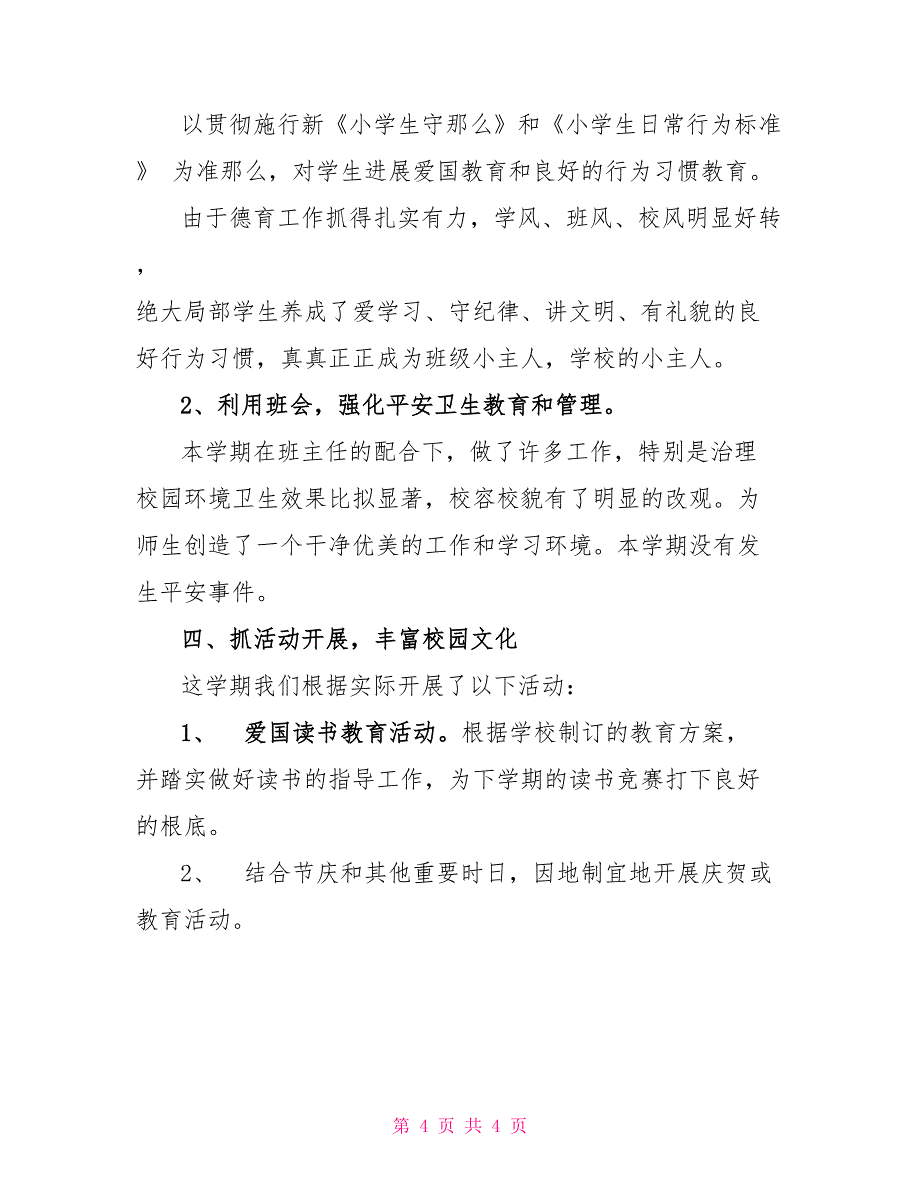 以贯彻施行新《小学生守那么》和《小学生日常行为标准
》 为准那么，对学生进展爱国教育和良好的行为习惯教育。
由于德育工作抓得扎实有力，学风、班风、校风明显好转
，
绝大局部学生养成了爱学习、守纪律、讲文明、有礼貌的良
好行为习惯，真真正正成为班级小主人，学校的小主人。
2、利用班会，强化平安卫生教育和管理。
本学期在班主任的配合下，做了许多工作，特别是治理
校园环境卫生效果比拟显著，校容校貌有了明显的改观。为
师生创造了一个干净优美的工作和学习环境。本学期没有发
生平安事件。
四、抓活动开展，丰富校园文化
这学期我们根据实际开展了以下活动：
1、 爱国读书教育活动。根据学校制订的教育方案，
并踏实做好读书的指导工作，为下学期的读书竞赛打下良好
的根底。
2、 结合节庆和其他重要时日，因地制宜地开展庆贺或
教育活动。
第 4 页 共 4 页